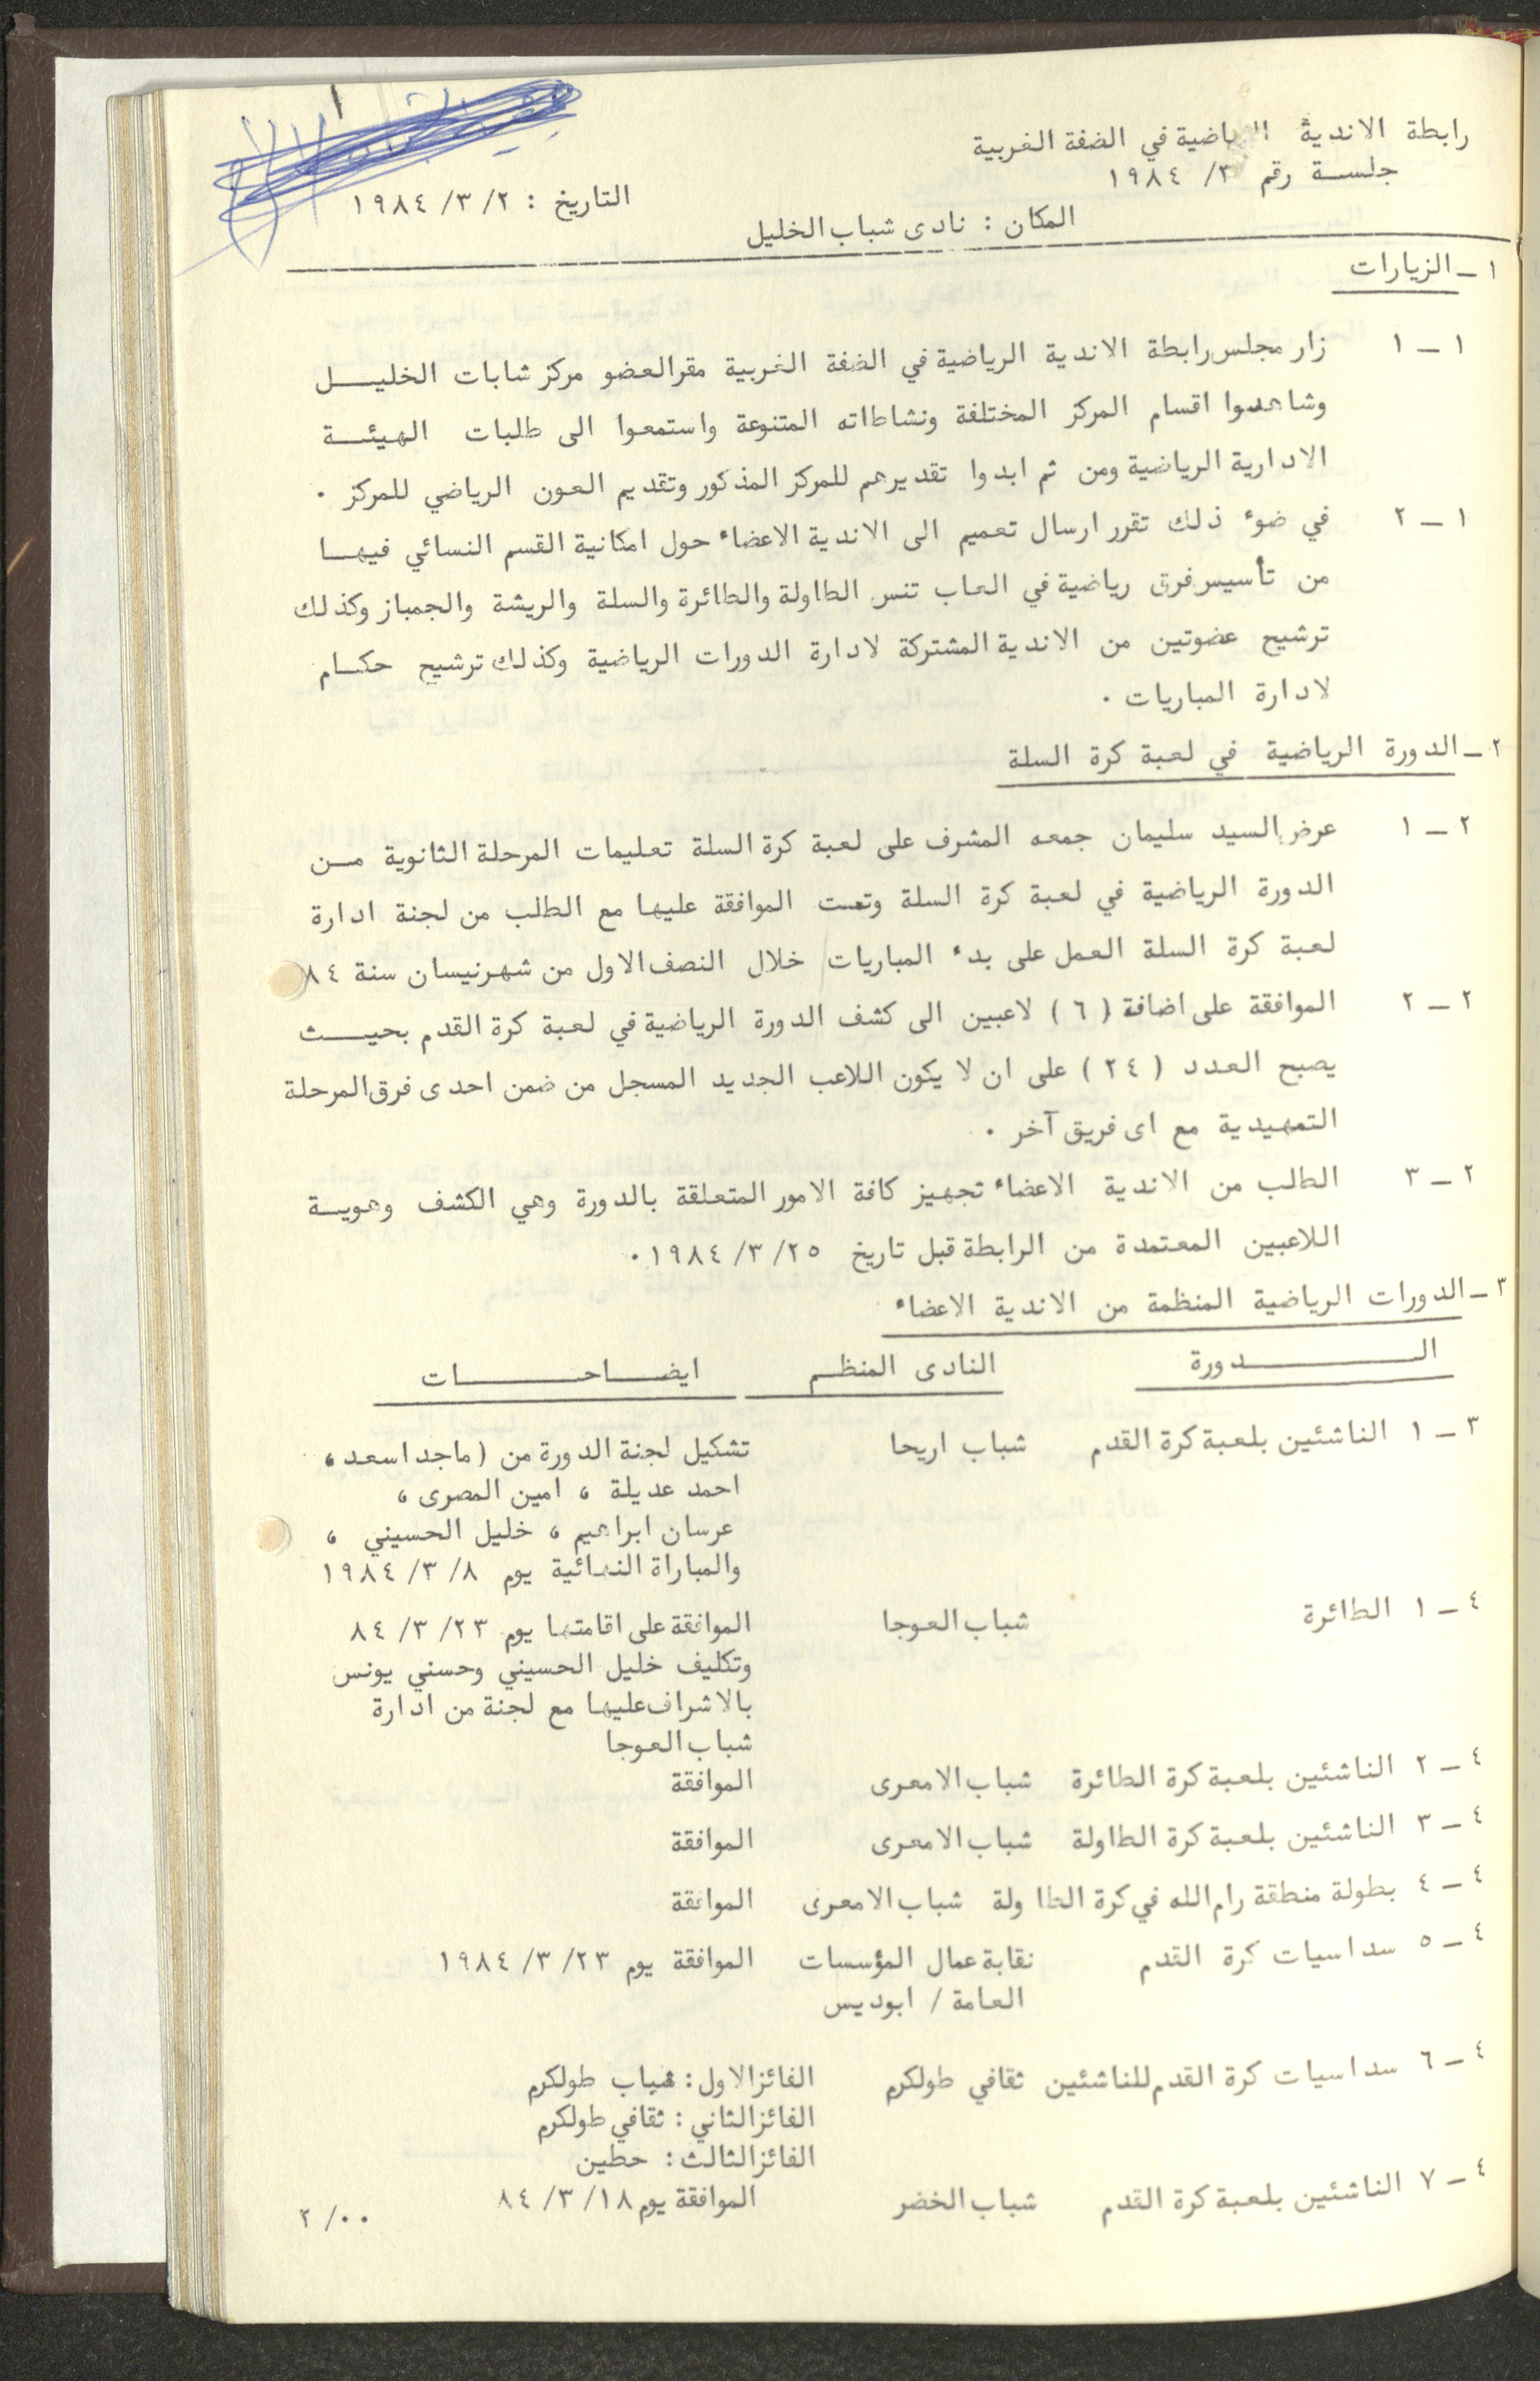 رابطة الاندية الرياضية في الضفة الغربية
جلسة رقم ٣/ ١٩٨٤
التاريخ : ٢/ ٣/ ١٩٨٤
المكان : نادى شباب الخليل
١ - الزيارات
١ - ١ زار مجلس رابطة الاندية الرياضية في الضفة الغربية مقر العضو مركز شابات الخليل
وشاهدوا اقسام المركز المختلفة ونشاطاته المتنوعة واستمعوا الى طلبات الهيئة
الادارية الرياضية ومن ثم ابدوا تقديرهم للمركز المذكور وتقديم العون الرياضي للمركز ٠
١ - ٢ في ضوء ذلك تقرر ارسال تعميم الى الاندية الاعضاء حول امكانية القسم النسائي فيها
من تأسيس فرق رياضية في العاب تنس الطاولة والطائرة والسلة والريشة والجمباز وكذلك
ترشيح عضوتين من الاندية المشتركة لادارة الدورات الرياضية وكذلك ترشيح حكام
لادارة المباريات ٠
٢ - الدورة الرياضية في لعبة كرة السلة
٢ - ١ عرض السيد سليمان جمعه المشرف على لعبة كرة السلة تعليمات المرحلة الثانوية من
الدورة الرياضية في لعبة كرة السلة وتمت الموافقة عليها مع الطلب من لجنة ادارة
لعبة كرة السلة العمل على بدء المباريات خلال النصف الاول من شهر نيسان سنة ٨٤
٢ - ٢ الموافقة على اضافة ( ٦ ) لاعبين الى كشف الدورة الرياضية في لعبة كرة القدم بحيث
يصبح العدد ( ٢٤ ) على ان لا يكون اللاعب الجديد المسجل من ضمن احدى فرق المرحلة
التمهيدية مع اى فريق آخر ٠
٢ - ٣ الطلب من الاندية الاعضاء تجهيز كافة الامور المتعلقة بالدورة وهي الكشف وهوية
اللاعبين المعتمدة من الرابطة قبل تاريخ ٢٥/ ٣/ ١٩٨٤ ٠
٣ - الدورات الرياضية المنظمة من الاندية الاعضاء
الدورة النادى المنظم ايضاحات
٣ - ١ الناشئين بلعبة كرة القدم شباب اريحا تشكيل لجنة الدورة من ( ماجد اسعد ،
احمد عديلة ، امين المصرى ،
عرسان ابراهيم ، خليل الحسيني ،
والمباراة النهائية يوم ٨/ ٣/ ١٩٨٤
٤ - ١ الطائرة شباب العوجا الموافقة على اقامتها يوم ٢٣/ ٣/ ٨٤
وتكليف خليل الحسيني وحسني يونس
بالاشراف عليها مع لجنة من ادارة
شباب العوجا
٤ - ٢ الناشئين بلعبة كرة الطائرة شباب الامعرى الموافقة
٤ - ٣ الناشئين بلعبة كرة الطاولة شباب الامعرى الموافقة
٤ - ٤ بطولة منطقة رام الله في كرة الطاولة شباب الامعرى الموافقة
٤ - ٥ سداسيات كرة القدم نقابة عمال المؤسسات الموافقة يوم ٢٣/ ٣/ ١٩٨٤
العامة / ابوديس
٤ - ٦ سداسيات كرة القدم للناشئين ثقافي طولكرم الفائز الاول : شباب طولكرم
الفائز الثاني : ثقافي طولكرم
الفائز الثالث : حطين
٤ - ٧ الناشئين بلعبة كرة القدم شباب الخضر الموافقة يوم ١٨/ ٣/ ٨٤
٠٠/ ٢